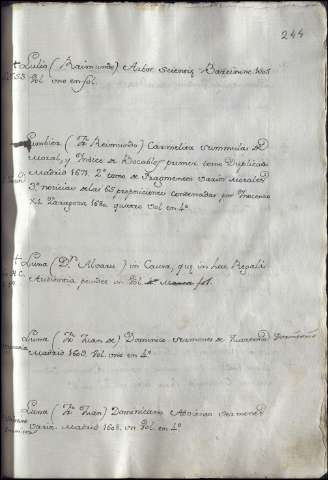 244
+ Lulio (Raimundo) Arbor scientiæ Barcinone 1505
Vol. uno en fol.
Lumbier (Fr. Reimundo) Carmelita summulas de
Moral, y Indice de Vocablos primer tomo Duplicado
Madrid 1679. 2º tomo de Fragmentos varios Morales
3º noticias de las 65 proposiciones condenadas por Inocencio
XI. Zaragoza 1680. quatro vol en 4º
+ Luna (Dn. Alvaro) in Causa, que in hac Regali
Audiencia pendet un Vol. fol.
Luna (Fr. Juan de) Dominico sermones de Quaresma
Madrid 1609. Vol. uno en 4º
Luna (Fr. Juan) Dominicano Adviento sermones
varios Madrid 1608. un Vol. en 4º